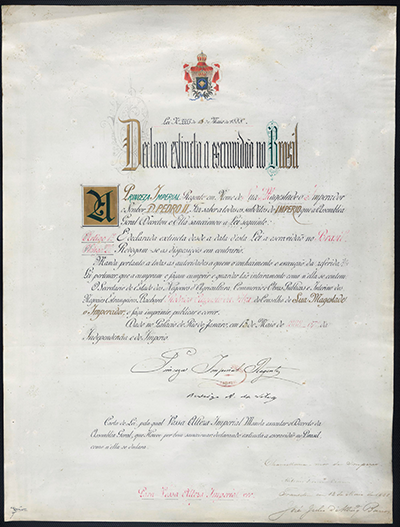 Lei Nº 3353 de 13 de Maio de 1888.
Declara extincta a escravidão no Brasil
A PRINCEZA IMPERIAL Regente em Nome de Sua Magestade o Imperador
o Senhor D. PEDRO II, Faz saber a todos os subditos do IMPERIO que a Assembléa
Geral Decretou e Ella sanccionou a Lei seguinte:
Artigo 1º É declarada extincta desde a data desta Lei a escravidão no Brasil.
Artigo 2º Revogam-se as disposições em contrario.
Manda portanto a todas as autoridades a quem o conhecimento e execução da referida
Lei pertencer, que a cumpram e façam cumprir e guardar tão inteiramente como n'ella se contem.
O Secretario de Estado dos Negocios d'Agricultura, Commercio e Obras Publicas e Interino dos
Negocios Estrangeiros, Bacharel do Conselho de Sua Magestade
o Imperador, o faça imprimir, publicar e correr.
Dado no Palacio do Rio de Janeiro, em 13 de Maio de
Independencia e do Imperio.
Princeza Imperial Regente
Rodrigo A. da Silva
Carta de Lei, pela qual Vossa Alteza Imperial Manda executar o Decreto da
Assembléa Geral, que Houve por bem sanccionar declarando extincta a escravidão no Brasil
como n'ella se declara.
Para Vossa Alteza Imperial ver.